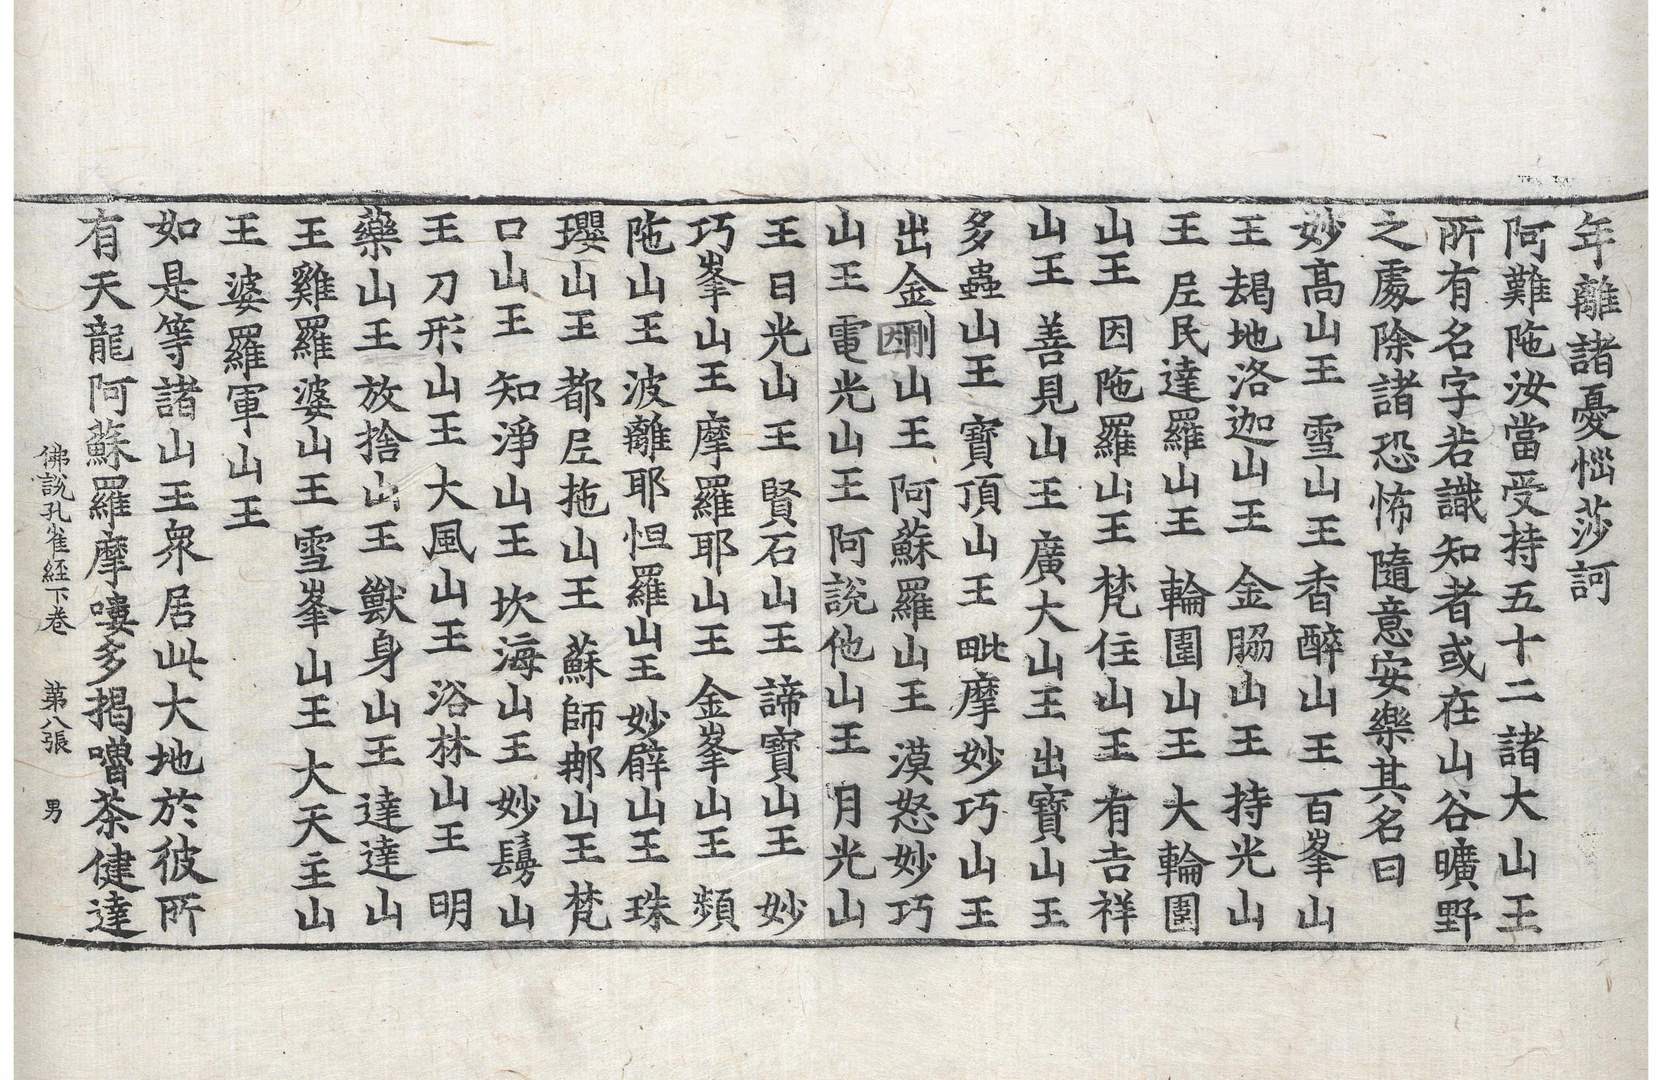 年離諸憂惱莎訶
阿難陁汝當受持五十二諸大山王
所有名字若識知者或在山谷曠野
之處除諸恐怖隨意安樂其名曰
妙高山王 雪山王 香醉山王 百峯山
王 朅地洛迦山王 金脇山王 持光山
王 𡰱民達羅山王 輪圍山王 大輪圍
山王 因陁羅山王 梵住山王 有吉祥
山王 善見山王 廣大山王 出寶山王
多蟲山王 寶頂山王 毗摩妙巧山王
出金剛山王 阿蘇羅山王 漠怒妙巧
山王 電光山王 阿說他山王 月光山
王 日光山王 賢石山王 諦寶山王 妙
巧峯山王 摩羅耶山王 金峯山王 頻
陁山王 波離耶怛羅山王 妙臂山王 珠
瓔山王 都𡰱拖山王 蘇師那山王 梵
口山王 知淨山王 坎海山王 妙鬘山
王 刀形山王 大風山王 浴林山王 明
藥山王 放捨山王 獸身山王 達達山
王 雞羅婆山王 雪峯山王 大天主山
王 婆羅軍山王
如是等諸山王衆居此大地於彼所
有天龍阿蘇羅摩嚕多揭嚕荼健達
佛說孔雀經下卷 第八張 男